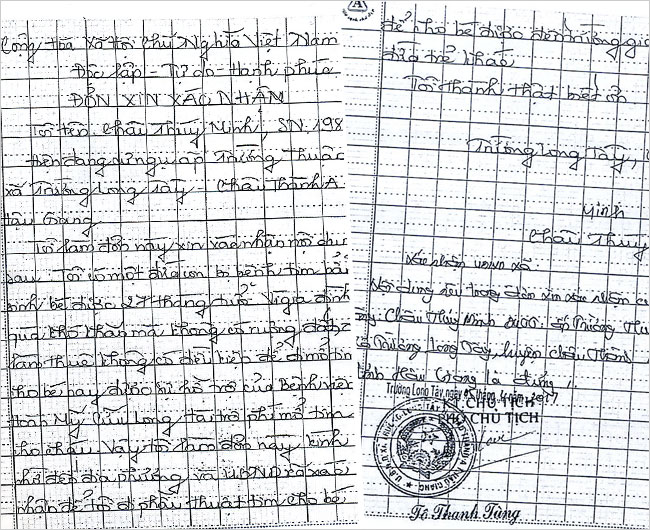 Cộng Hòa Xã Hội Chủ Nghĩa Việt Nam
Độc lập - Tự do - Hạnh phúc
ĐƠN XIN XÁC NHẬN
Tôi tên Châu Thuý Minh, SN. 198
Hiện đang cư ngụ ấp Trường Thuận
xã Trường Long Tây - Châu Thành A
Hậu Giang
Tôi làm đơn này xin xác nhận nội dung
sau. Tôi có một đứa con bị bệnh tim bẩm
sinh bé được 27 tháng tuổi. Vì gia đình
quá khó khăn mà không có ruộng đất
làm thuê không có điều kiện để đi mổ tim
cho bé nay được sự hỗ trợ của Bệnh viện
Hoàn Mỹ Cửu Long tài trợ phí mổ tim
cho cháu. Vậy tôi làm đơn này kính
nhờ đến địa phương và UBND xã xác
nhận để tôi đi phẫu thuật tim cho bé
để cho bé được đến trường
đứa trẻ khác
Tôi thành thật biết ơn
Trường Long Tây,
Minh
Châu Thuý
Xác nhận UBND xã
Nội dung nêu trong đơn xin xác nhận
Châu Thúy Minh ấp Trường
Trường Long Tây, huyện Châu Thành
tỉnh Hậu Giang là đúng.
Trường Long Tây, ngày tháng
CHỦ TỊCH
CHỦ TỊCH
Tô Thanh Tùng